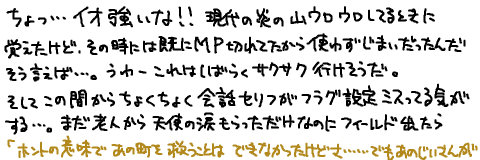 ちょっ…イオ強いな!!現代の炎の山ウロウロしてるときに
覚えたけど、その時には既にMP切れてたから使わずじまいだったんだ
そう言えば…。うわーこれはしばらくサクサク行けそうだ。
そしてこの間からちょくちょく会話セリフがフラグ設定ミスってる気が
する…。まだ老人から天使の涙もらっただけなのにフィールド出たら
「ホントの意味であの町を救うことはできなかったけどさ……でもあのじいさんが